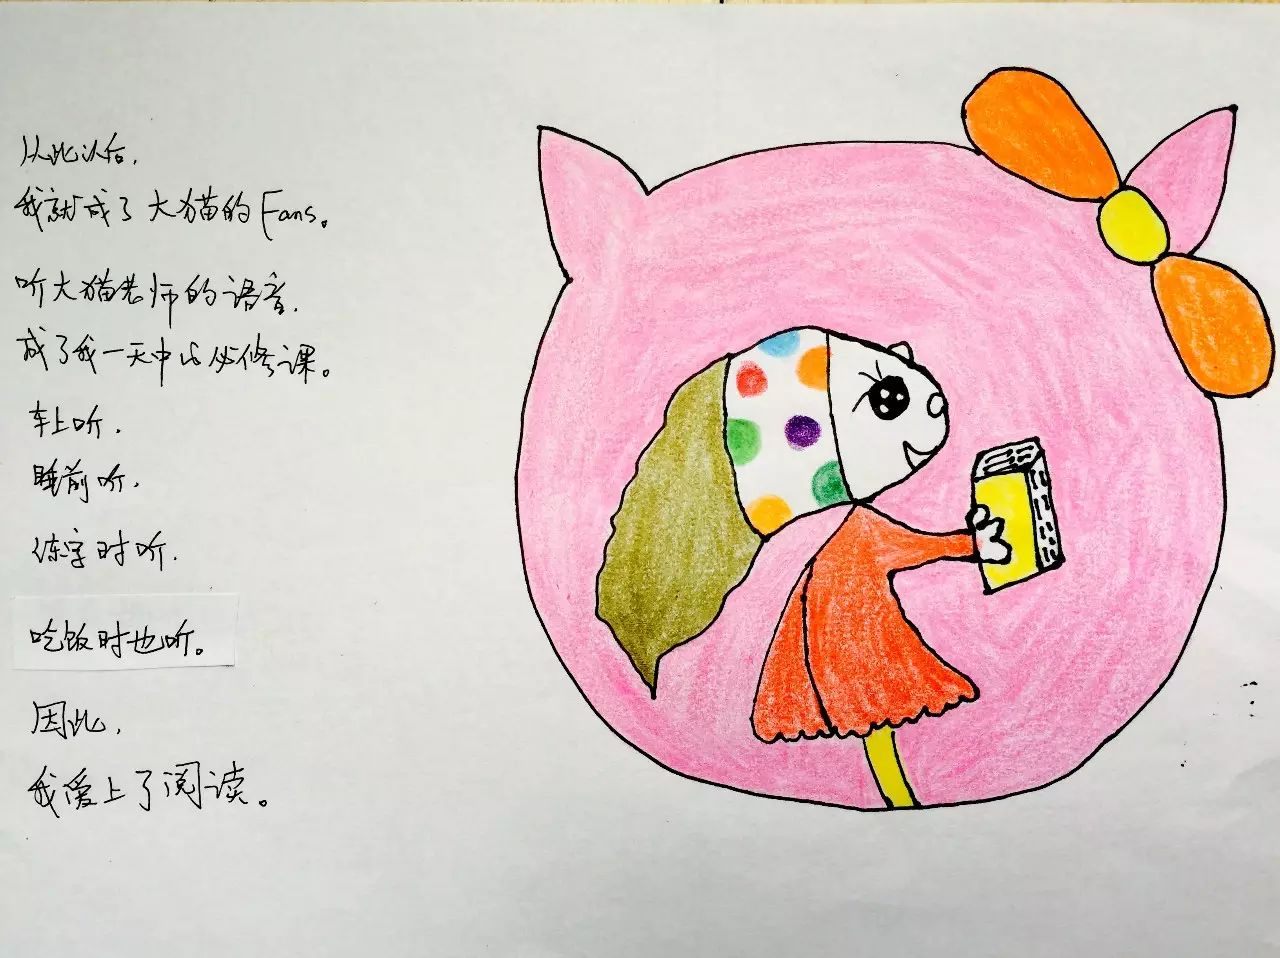 从此以后,
我就成了大猫的Fans。
听大猫老师的语音,
成了我一天中的必修课。
车上听,
睡前听,
练字时听,
吃饭时也听。
因此,
我爱上了阅读。